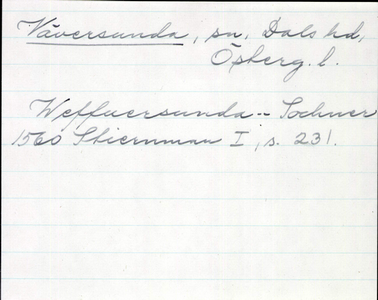 Väversunda, sn, Dals hd,
Österg. l.
Weffuersunda - Sochner
1560 Stiernman I, s. 231.